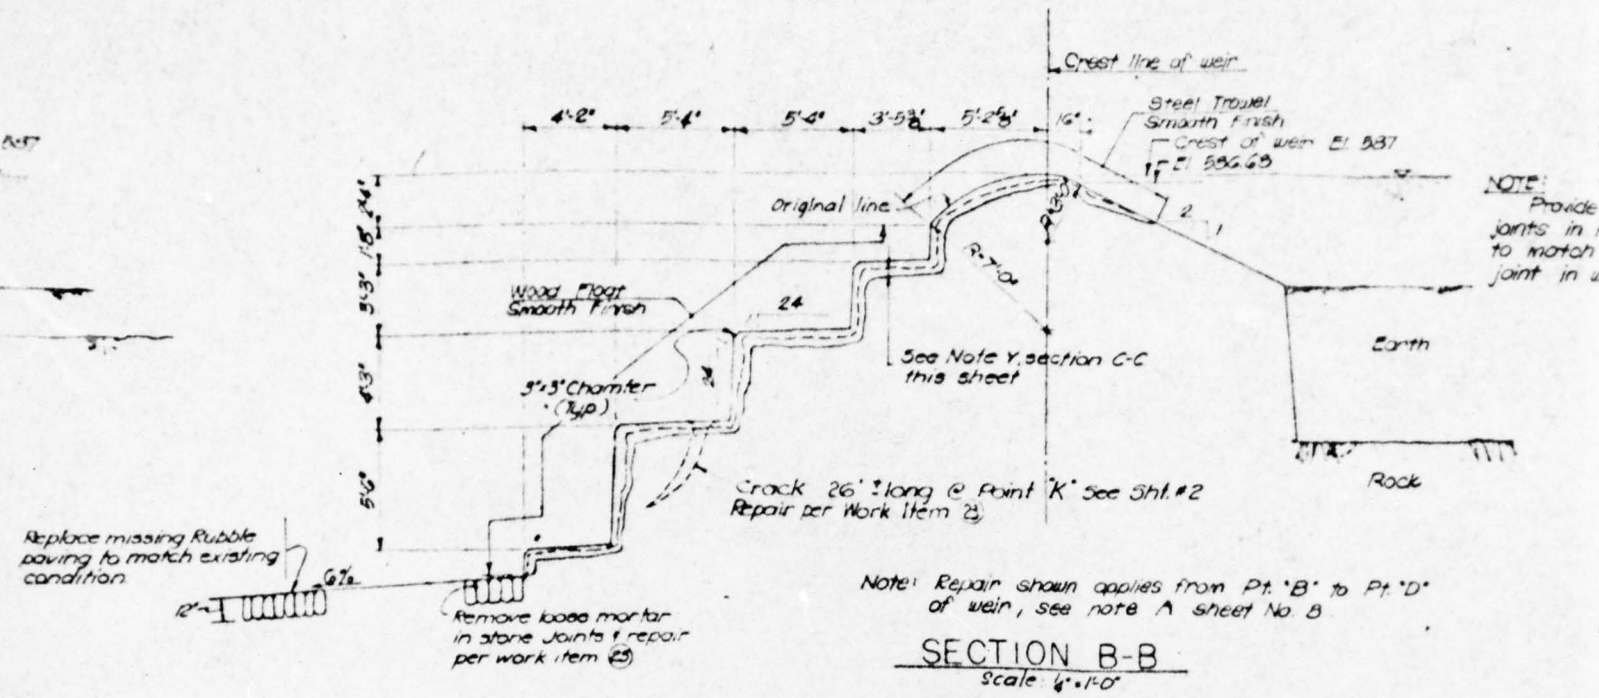 Crest line of weir
4'-2"
5'-4"
5'-4"
3'-5⅜"
5'-2⅝"
16"
Steel Trowel
Smooth Finish
Crest of weir El. 587
El 586.63
2
1
Original line
R=7'-0"
NOTE:
Provide
joints in
to match
joint in
2'4"
1'8"
3'3"
4'3"
5'6"
Wood Float
Smooth Finish
24
24
3"x3" Chamfer
(Typ.)
See Note Y, section C-C
this sheet
Earth
Rock
Crack 26' ± long @ Point "K" See Sht. #2
Repair per Work Item
Replace missing Rubble
paving to match existing
condition
6%
12"
Remove loose mortar
in stone joints & repair
per work item 25
Note: Repair shown applies from Pt. "B" to Pt. "D"
of weir, see note A sheet No. 8
SECTION B-B
Scale: ¼"=1'-0"